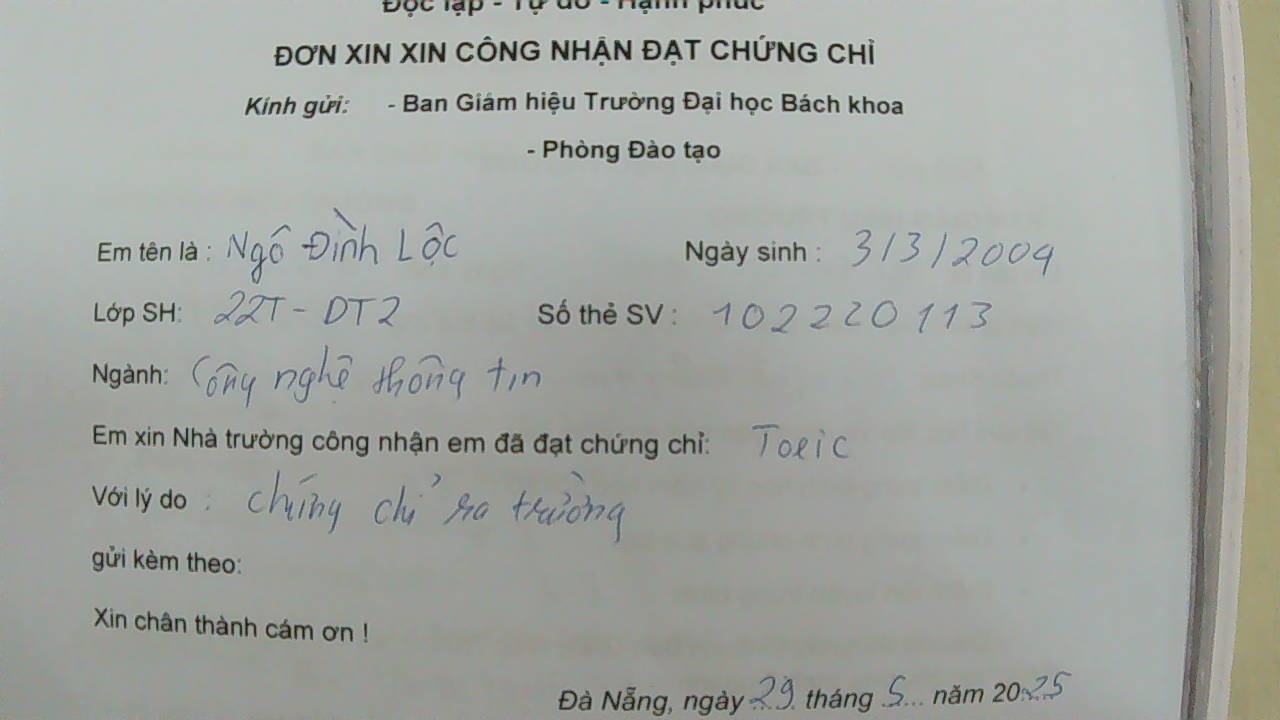 Độc lập - Tự do - Hạnh phúc
ĐƠN XIN XIN CÔNG NHẬN ĐẠT CHỨNG CHỈ
Kính gửi: - Ban Giám hiệu Trường Đại học Bách khoa
- Phòng Đào tạo
Em tên là : Ngô Đình Lộc Ngày sinh : 3/3/2004
Lớp SH: 22T - DT2 Số thẻ SV : 102220113
Ngành: Công nghệ thông tin
Em xin Nhà trường công nhận em đã đạt chứng chỉ: Toeic
Với lý do : chứng chỉ ra trường
gửi kèm theo:
Xin chân thành cám ơn !
Đà Nẵng, ngày 29 tháng 5 năm 2025